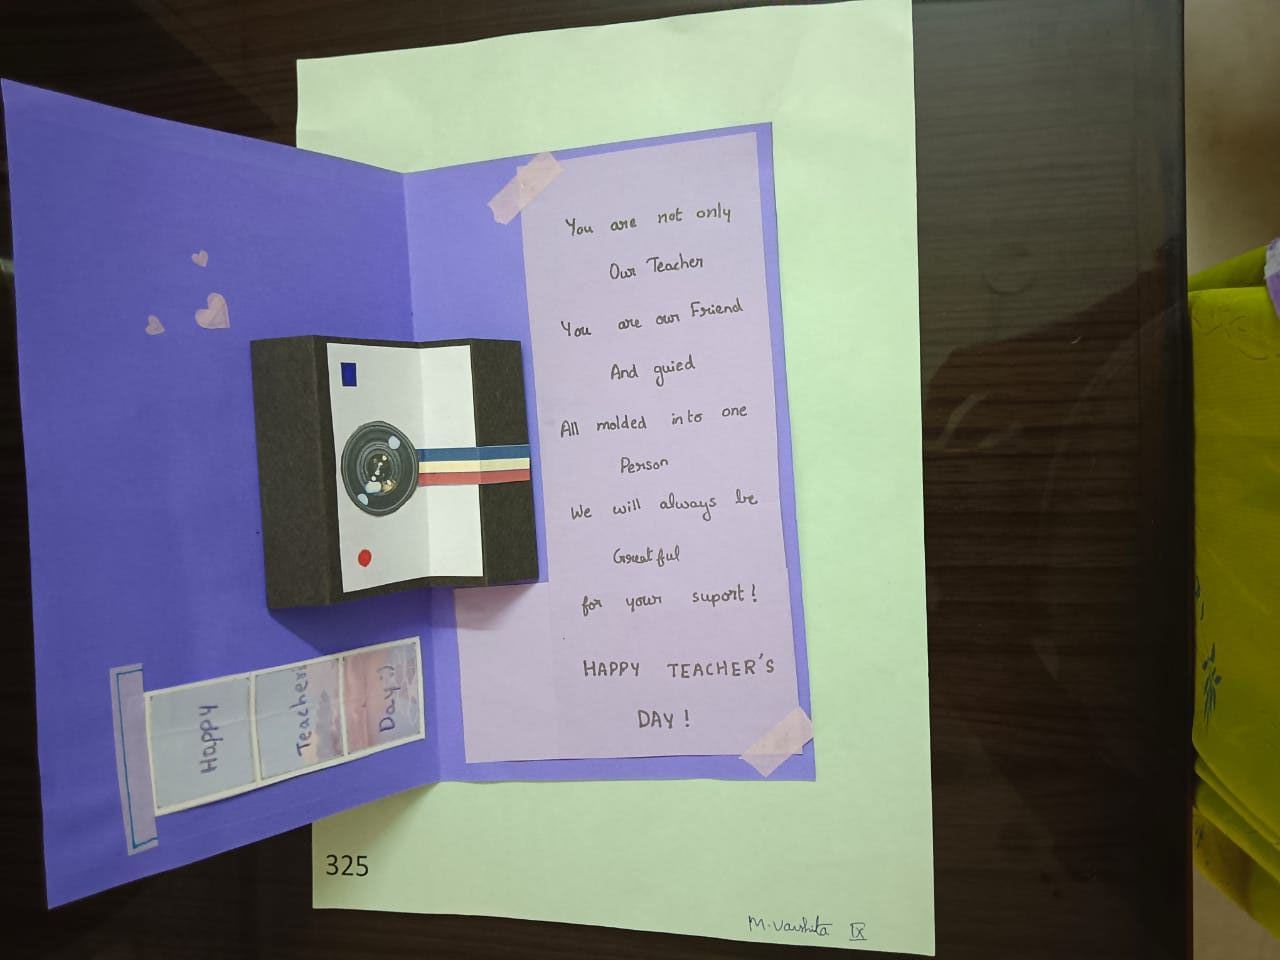 You are not only
Our Teacher
You are our Friend
And guied
All molded into one
Person
We will always be
Greatful
for your suport!
HAPPY TEACHER'S
DAY!
Happy
Teacher
Day:)
325
M.Varshita IX